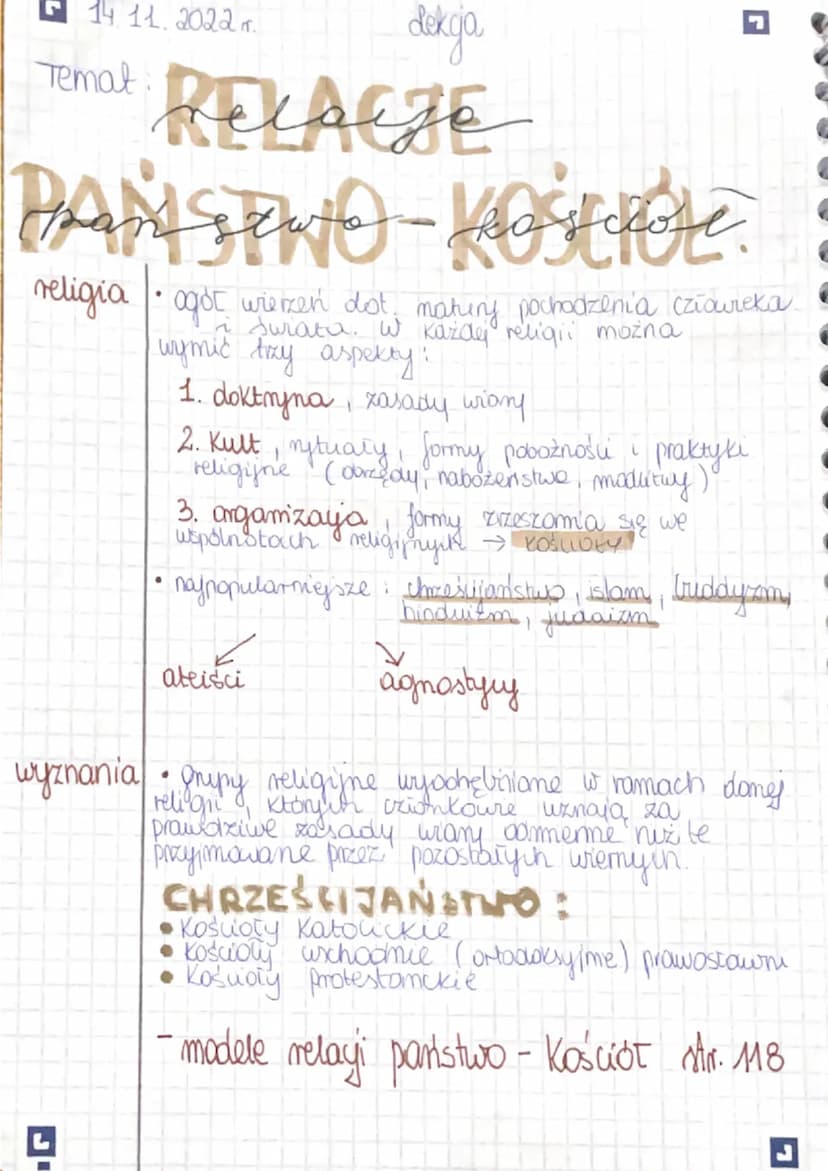 14.11.2022 r. Lekcja
Temat: RELACJE
relacje
PAŃSTWO-KOŚCIÓŁ.
państwo-kościół.
religia • ogół wierzeń dot. natury pochodzenia człowieka
i świata. W każdej religii można
wymić trzy aspekty:
1. doktryna, zasady wiary
2. Kult, rytuały, formy pobożności i praktyki
religijne (obrzędy, nabożeństwa, modlitwy)
3. organizacja, formy zrzeszania się we
wspólnotach religijnych → KOŚCIOŁY
• najpopularniejsze: chrześcijaństwo, islam, buddyzm,
hinduizm, judaizm
ateiści agnostycy
wyznania • grupy religijne wyodrębniane w ramach danej
religii, których członkowie uznają za
prawdziwe zasady wiary odmienne niż te
przyjmowane przez pozostałych wiernych.
CHRZEŚCIJAŃSTWO:
• Kościoły Katolickie
• Kościoły wschodnie (ortodoksyjne) prawosławni
• Kościoły protestanckie
- modele relacji państwo - Kościół str. 118